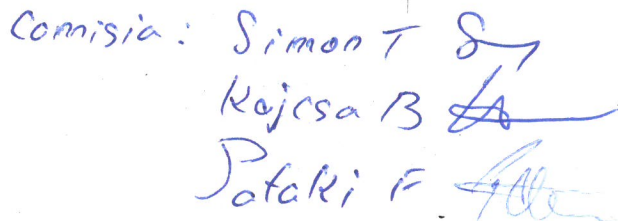 Comisia: Simon T
Kajcsa B
Pataki F.